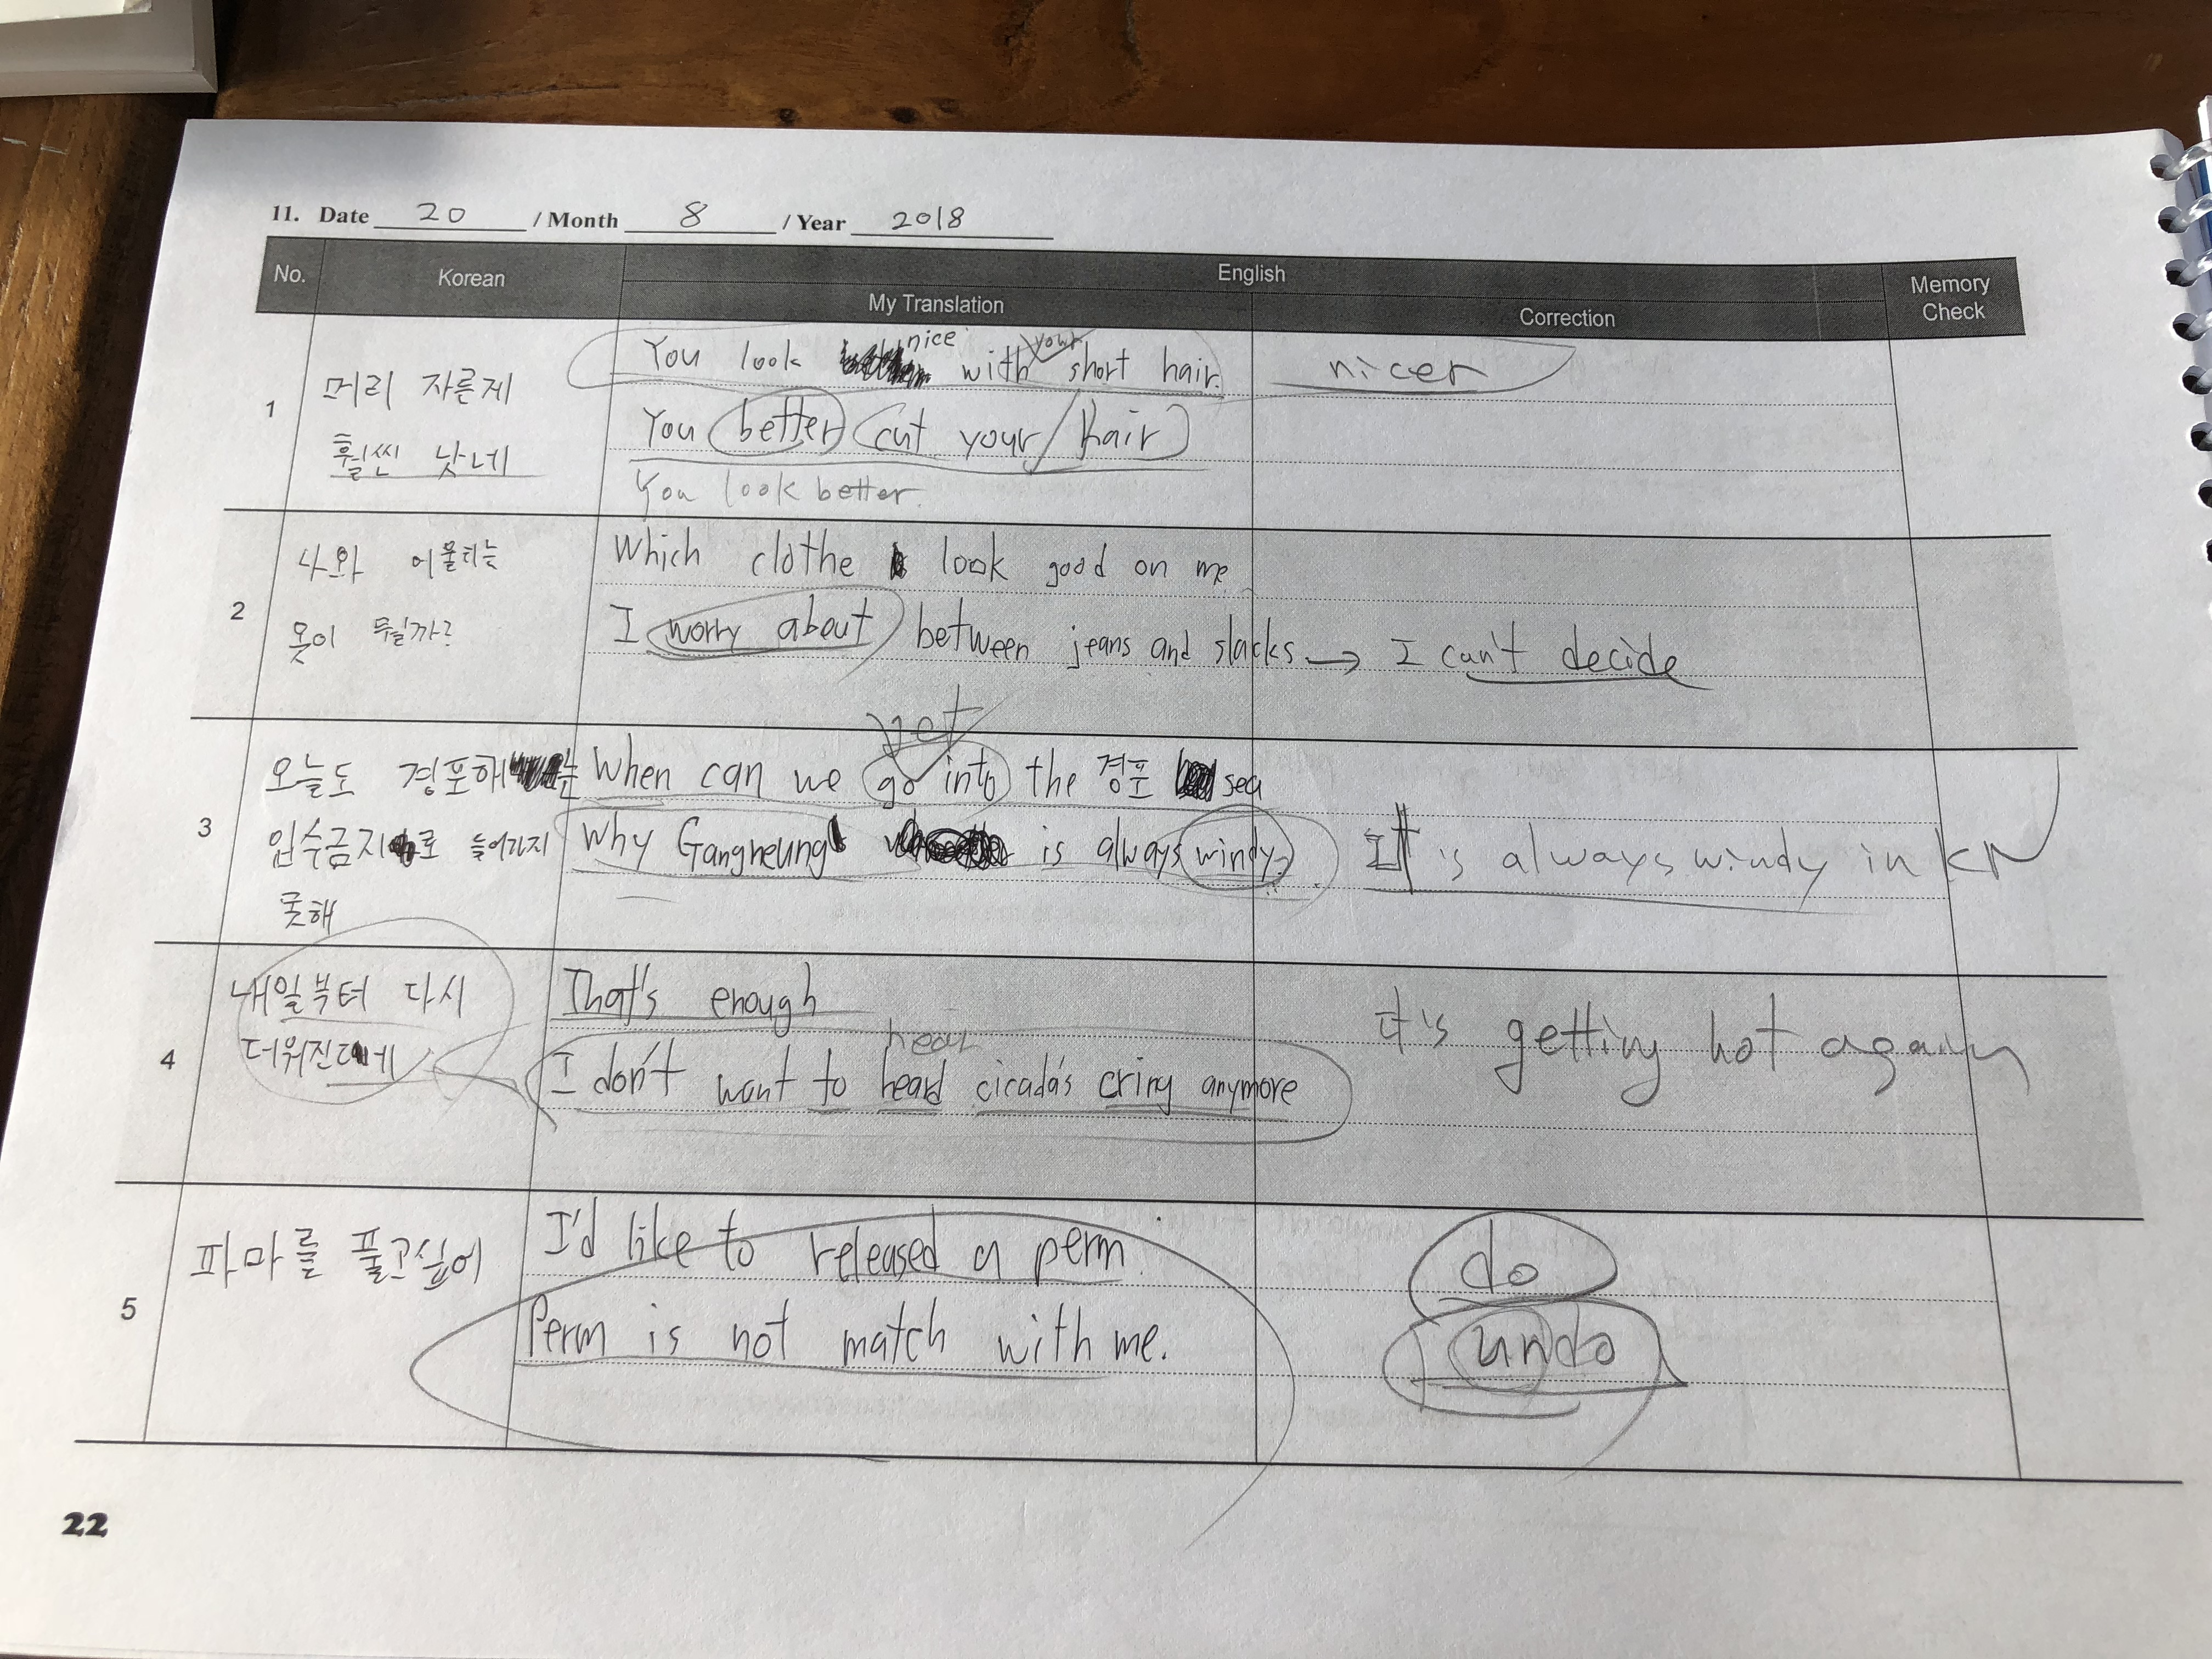 11. Date 20 / Month 8 / Year 2018
No. Korean English Memory Check
My Translation Correction
1
머리 자른게
훨씬 낫네
nice your
You look with short hair. nicer
You better cut your hair
You look better.
2
나와 어울리는
옷이 뭘까?
Which clothe look good on me
I worry about between jeans and slacks → I can't decide
3
오늘도 경포해는
입수금지로 들어가지
못해
yet
When can we go into the 경포 sea
Why Gangneung is always windy. It is always windy in KN
4
내일부터 다시
더워진대네
That's enough It's getting hot again
hear
I don't want to heard cicada's cring anymore
5
파마를 풀고싶어
I'd like to released a perm. do
Perm is not match with me. undo
22